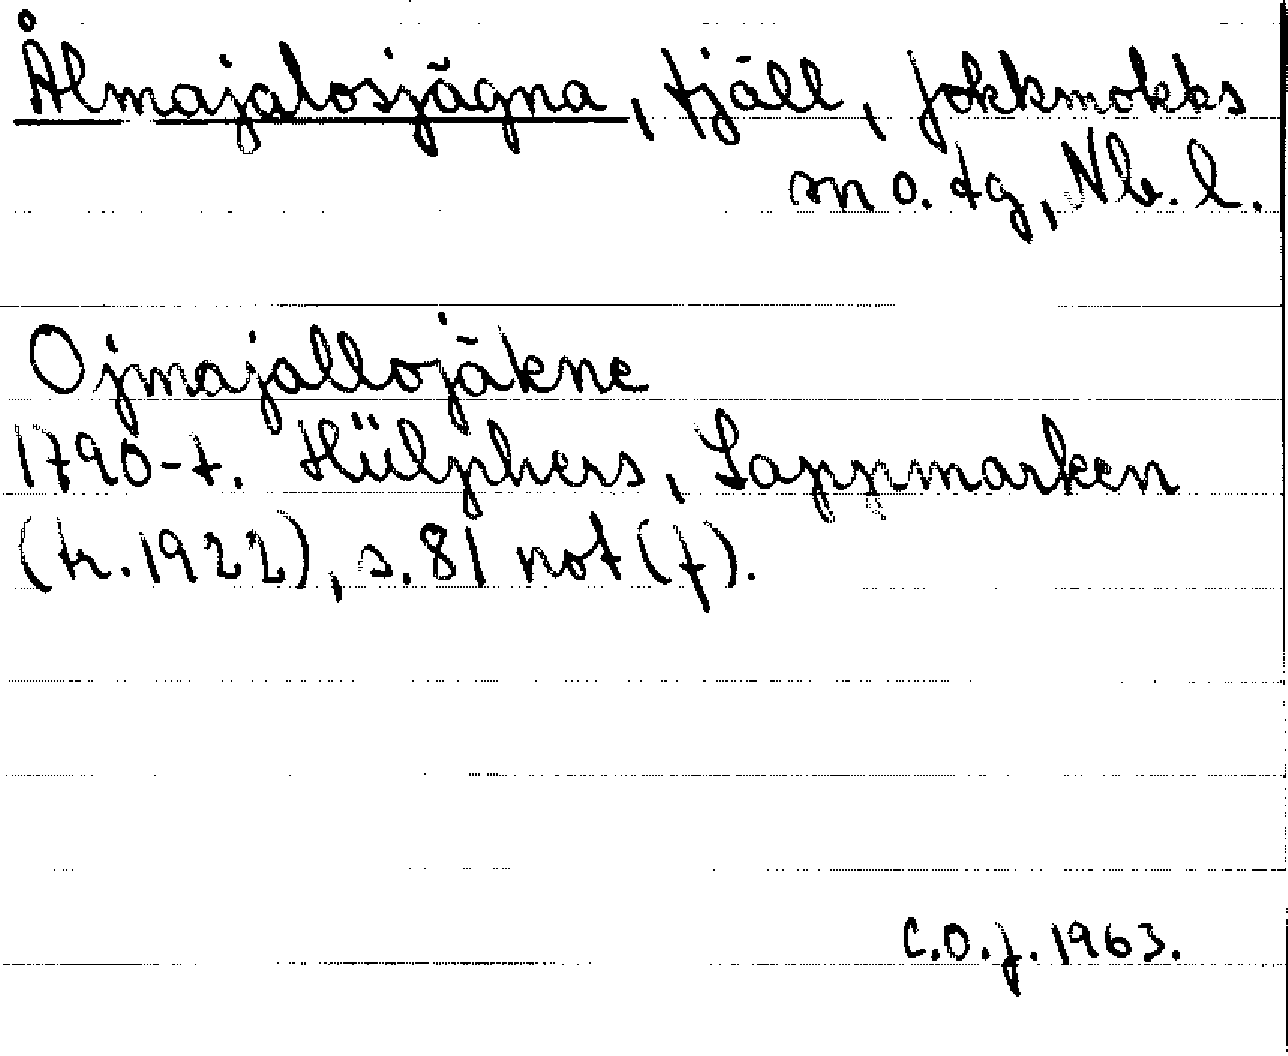 Ålmajalosjägna, fjäll, Jokkmokks
sn o. tg, Nb. l.
Ojmajallojäkne
1790-t. Hülphers, Lappmarken
(tr. 1922), s. 81 not (f).
C.O.J. 1963.